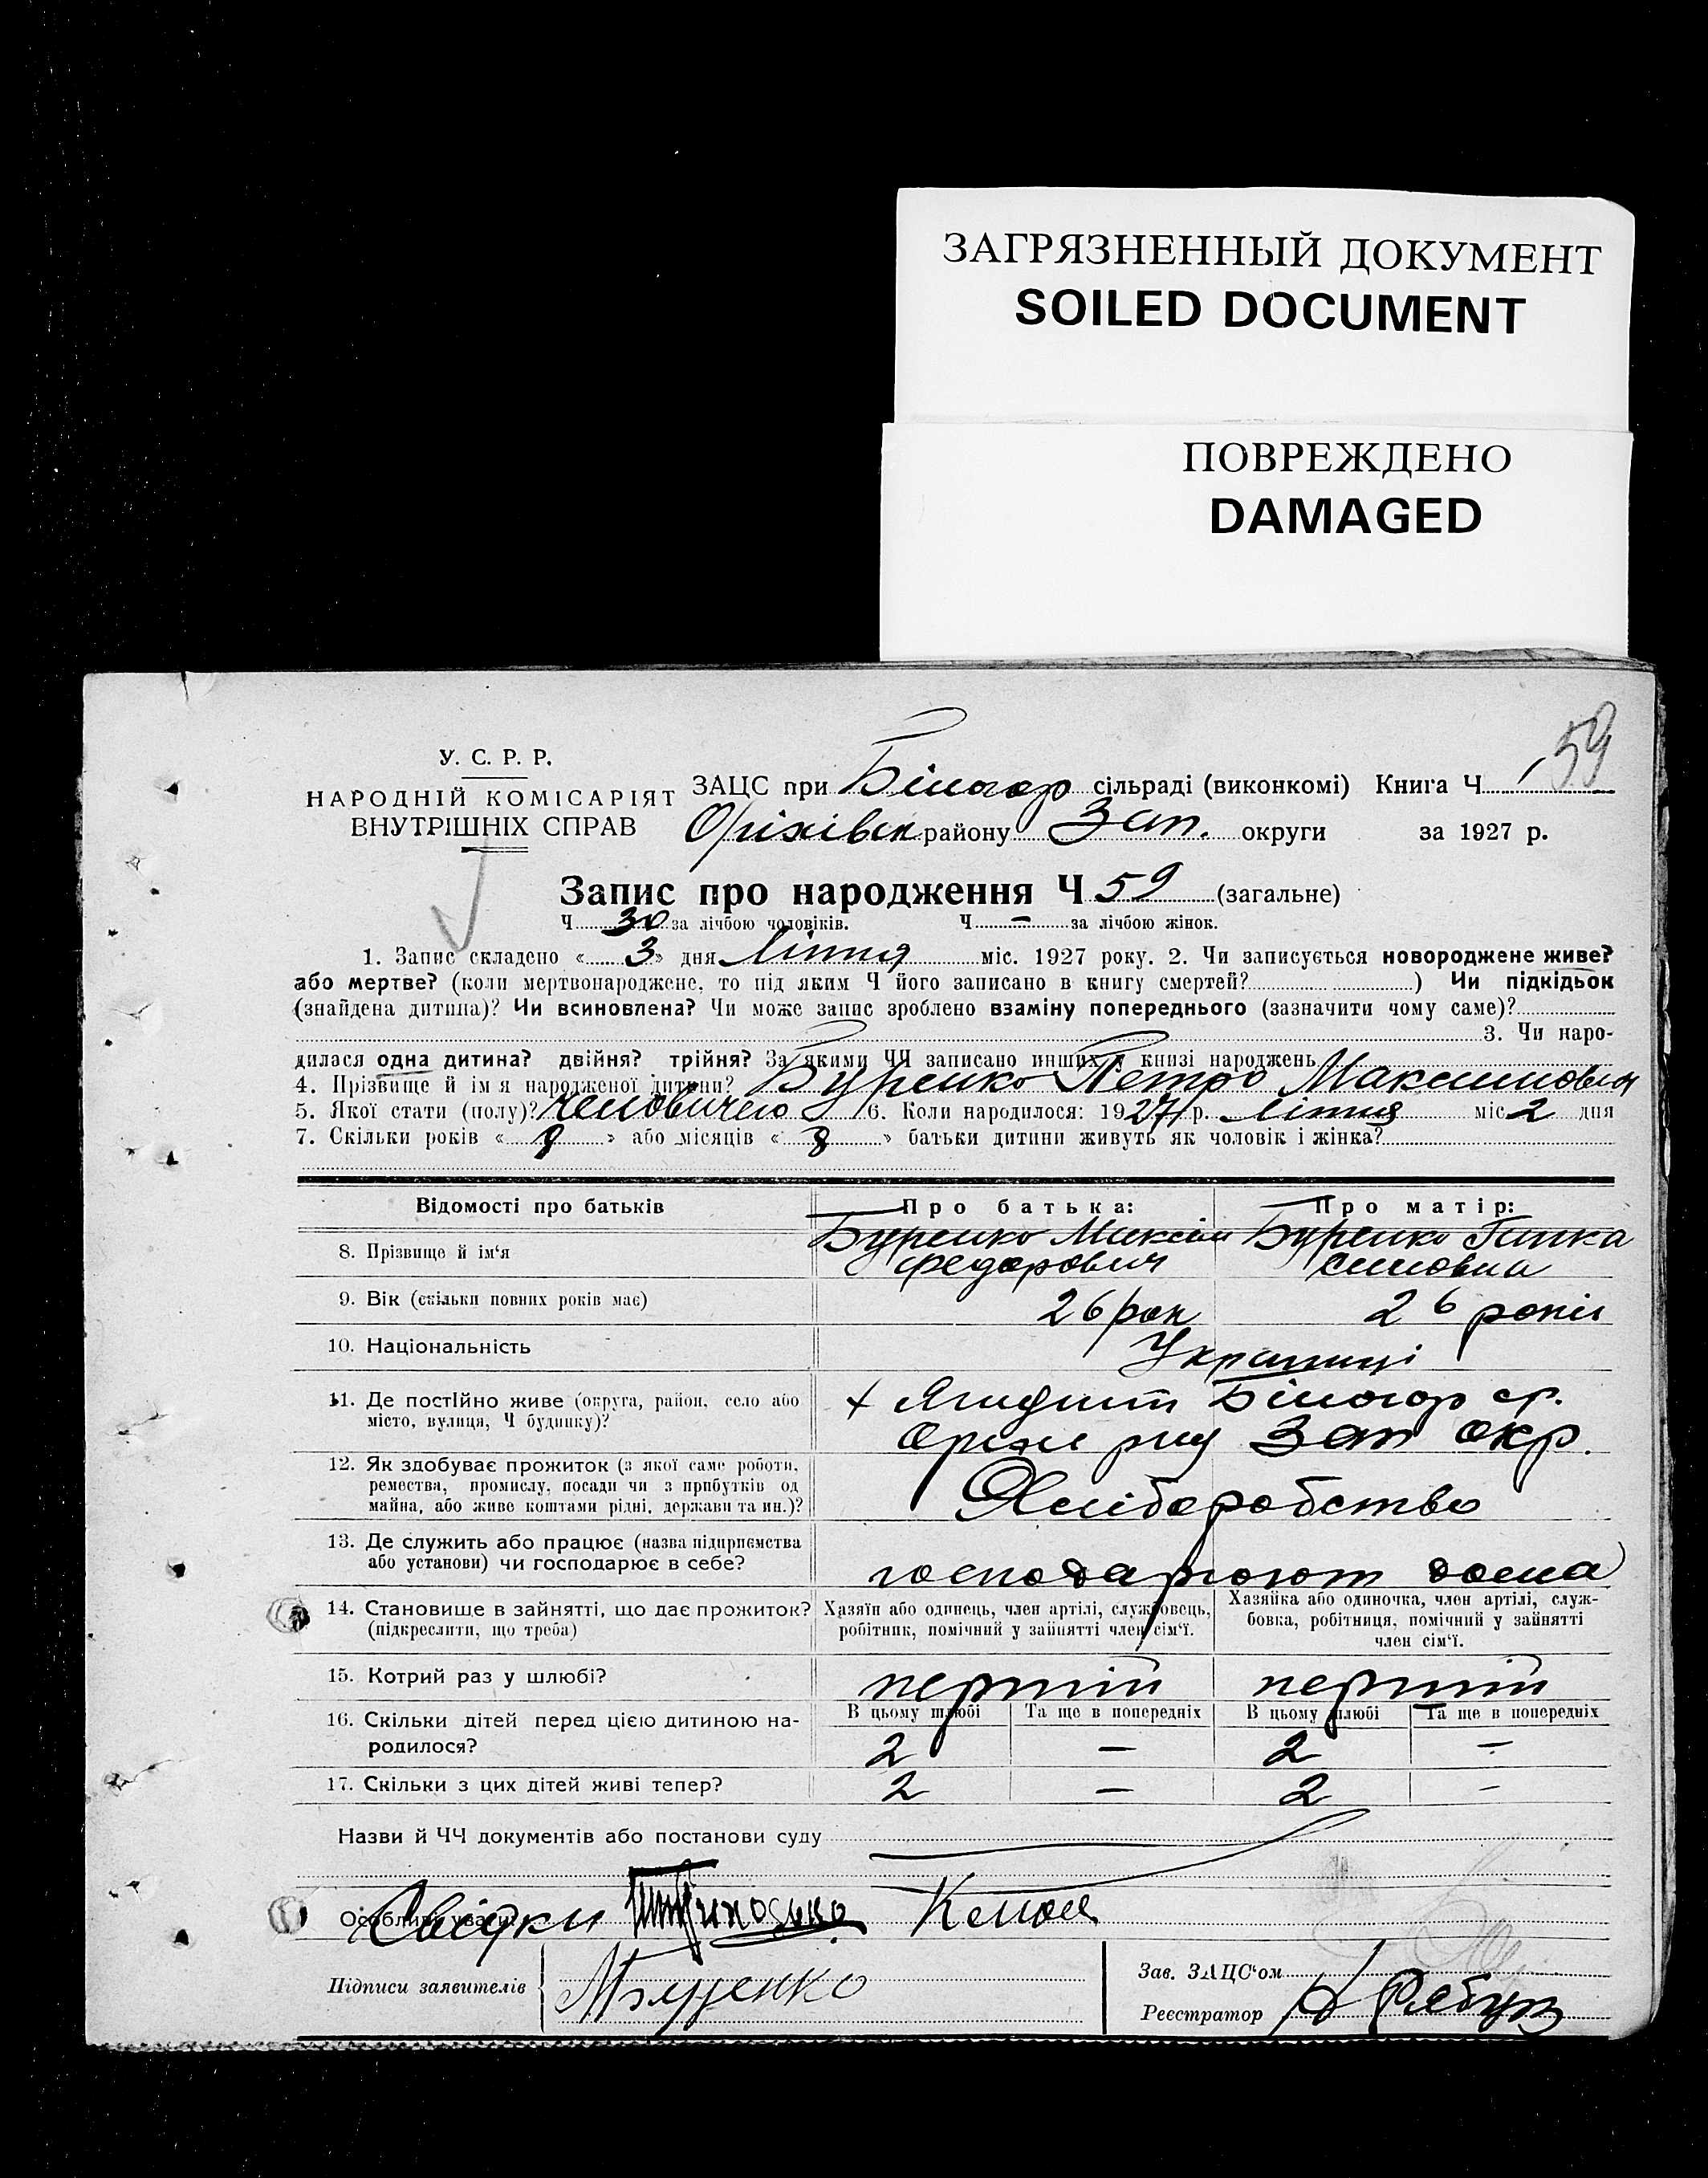 ЗАГРЯЗНЕННЫЙ ДОКУМЕНТ
SOILED DOCUMENT
ПОВРЕЖДЕНО
DAMAGED
59
У. С. Р. Р.
НАРОДНІЙ КОМІСАРІЯТ
ВНУТРІШНІХ СПРАВ
ЗАЦС при Білогор сільраді (виконкомі) Книга Ч
Оріхівск району Зап. округи за 1927 р.
Запис про народження Ч 59 (загальне)
Ч 30 за лічбою чоловіків. Ч — за лічбою жінок.
1. Запис складено « 3 » дня Літня міс. 1927 року. 2. Чи записується новороджене живе?
або мертве? (коли мертвонароджене, то під яким Ч його записано в книгу смертей? ) Чи підкідьок
(знайдена дитина)? Чи всиновлена? Чи може запис зроблено взаміну попереднього (зазначити чому саме)?
3. Чи наро-
дилася одна дитина? двійня? трійня? За якими ЧЧ записано инших у книзі народжень
4. Прізвище й ім я народженої дитини? Буренко Петро Максимович
5. Якої стати (полу)? 6. Коли народилося: 1927 р. Літня міс 2 дня
7. Скільки років « 8 » або місяців « 8 » батьки дитини живуть як чоловік і жінка?
Відомості про батьків Про батька: Про матір:
8. Прізвище й ім‘я Буренко Максим Буренко
Федорович
9. Вік (скільки повних років має) 26 рок 26 років
10. Національність Українці
11. Де постійно живе (округа, район, село або
місто, вулиця, Ч будинку)? Білогор ср.
Зап окр.
12. Як здобуває прожиток (з якої саме роботи,
ремества, промислу, посади чи з прибутків од
майна, або живе коштами рідні, держави та ин.)? Хліборобство
13. Де служить або працює (назва підприємства
або установи) чи господарює в себе? господарюют дома
14. Становище в зайнятті, що дає прожиток?
(підкреслити, що треба)
Хазяїн або одинець, член артілі, службовець,
робітник, помічний у зайнятті член сім‘ї.
Хазяйка або одиночка, член артілі, служ-
бовка, робітниця, помічний у зайнятті
член сім‘ї.
15. Котрий раз у шлюбі? першій першій
16. Скільки дітей перед цією дитиною на-
родилося?
В цьому шлюбі Та ще в попередніх В цьому шлюбі Та ще в попередніх
2 — 2 —
17. Скільки з цих дітей живі тепер? 2 — 2 —
Назви й ЧЧ документів або постанови суду
Особливі уваги: Свідки
Підписи заявителів
Зав. ЗАЦС‘ом
Реєстратор